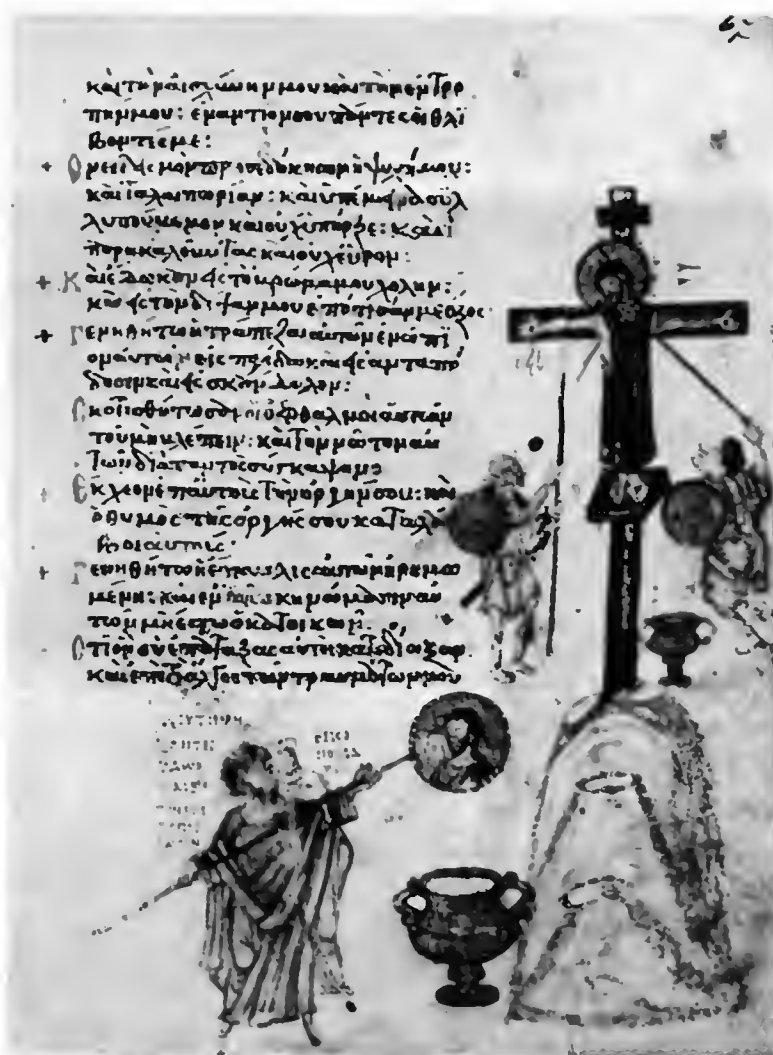 καὶ τὴν αἰσχύνην μου καὶ τὴν ἐντρο
πήν μου: ἐναντίον σου πάντες οἱ θλί
βοντές με:
+ Ὀνειδισμὸν προσεδόκησεν ἡ ψυχή μου:
καὶ ταλαιπωρίαν: καὶ ὑπέμεινα συλ
λυπούμενον καὶ οὐχ ὑπῆρξε: καὶ
παρακαλοῦντας καὶ οὐχ εὗρον:
+ Καὶ ἔδωκαν εἰς τὸ βρῶμα μου χολήν:
καὶ εἰς τὴν δίψαν μου ἐπότισάν με ὄξος
+ Γενηθήτω ἡ τράπεζα αὐτῶν ἐνώπι
ον αὐτῶν εἰς παγίδα καὶ εἰς ἀνταπό
δοσιν καὶ εἰς σκάνδαλον:
Σκοτισθήτωσαν οἱ ὀφθαλμοὶ αὐτῶν
τοῦ μὴ βλέπειν: καὶ τὸν νῶτον αὐ
τῶν διὰ παντὸς σύγκαμψον
+ Ἔκχεον ἐπ' αὐτοὺς τὴν ὀργήν σου: καὶ
ὁ θυμὸς τῆς ὀργῆς σου καταλά
βοι αὐτούς:
+ Γενηθήτω ἡ ἔπαυλις αὐτῶν ἠρημω
μένη: καὶ ἐν τοῖς σκηνώμασιν αὐ
τῶν μὴ ἔστω ὁ κατοικῶν.
Ὅτι ὃν σὺ ἐπάταξας αὐτοὶ κατεδίωξαν
καὶ ἐπὶ τὸ ἄλγος τῶν τραυμάτων μου